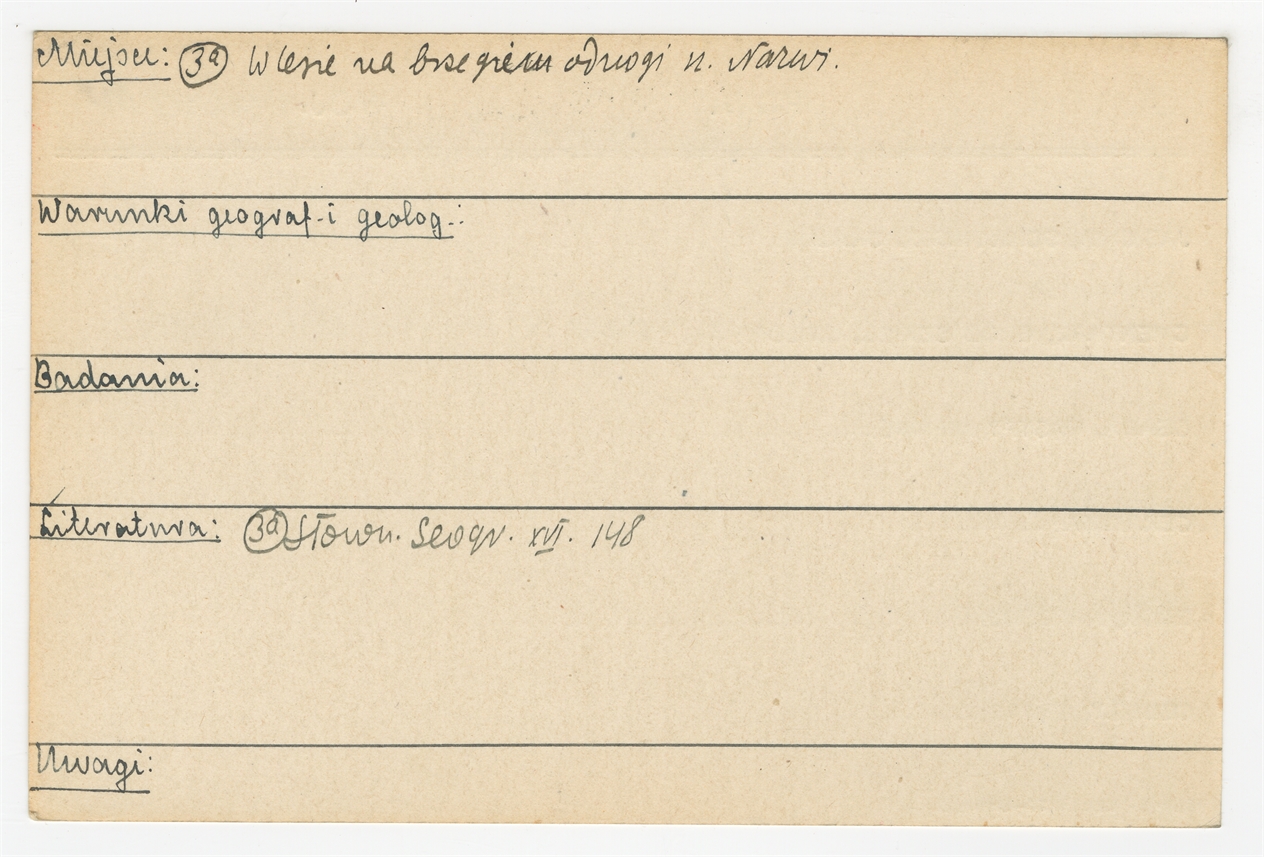 Miejsce: 3a W lesie na brzegiem odnogi n. Narwi.
Warunki geograf. i geolog.:
Badania:
Literatura: 3a Słown. Geogr. XVI. 148
Uwagi: